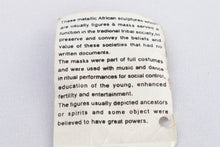 These metallic African sculptures which
are usually figures & masks served a
function in the tradional tribal society, to
preserve and convey the beliefs and
value of these societies that had no
written documents.
The masks were part of full costumes
and were used with music and dance
in ritual performances for social control,
education of the young, enhanced
fertility and entertainment.
The figures usually depicted ancestors
or spirits and some object were
believed to have great powers.